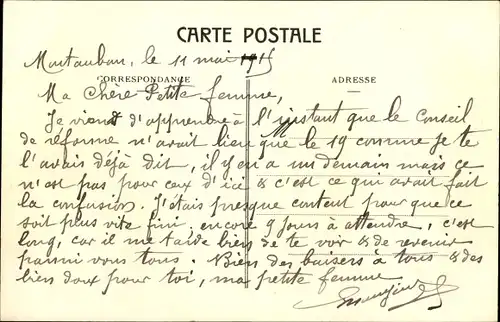 CARTE POSTALE
Montauban, le 11 mai 1915
CORRESPONDANCE
ADRESSE
Ma Chère Petite femme,
Je viens d'apprendre à l'instant que le Conseil
de réforme n'avait lieu que le 19 comme je te
l'avais déjà dit, il y en a un demain mais ce
n'est pas pour ceux d'ici & c'est ce qui avait fait
la confusion. J'étais presque content pour que ce
soit plus vite fini, encore 9 jours à attendre, c'est
long, car il me tarde bien de te voir & de revenir
parmi vous tous. Bien des baisers à tous & des
bien doux pour toi, ma petite femme